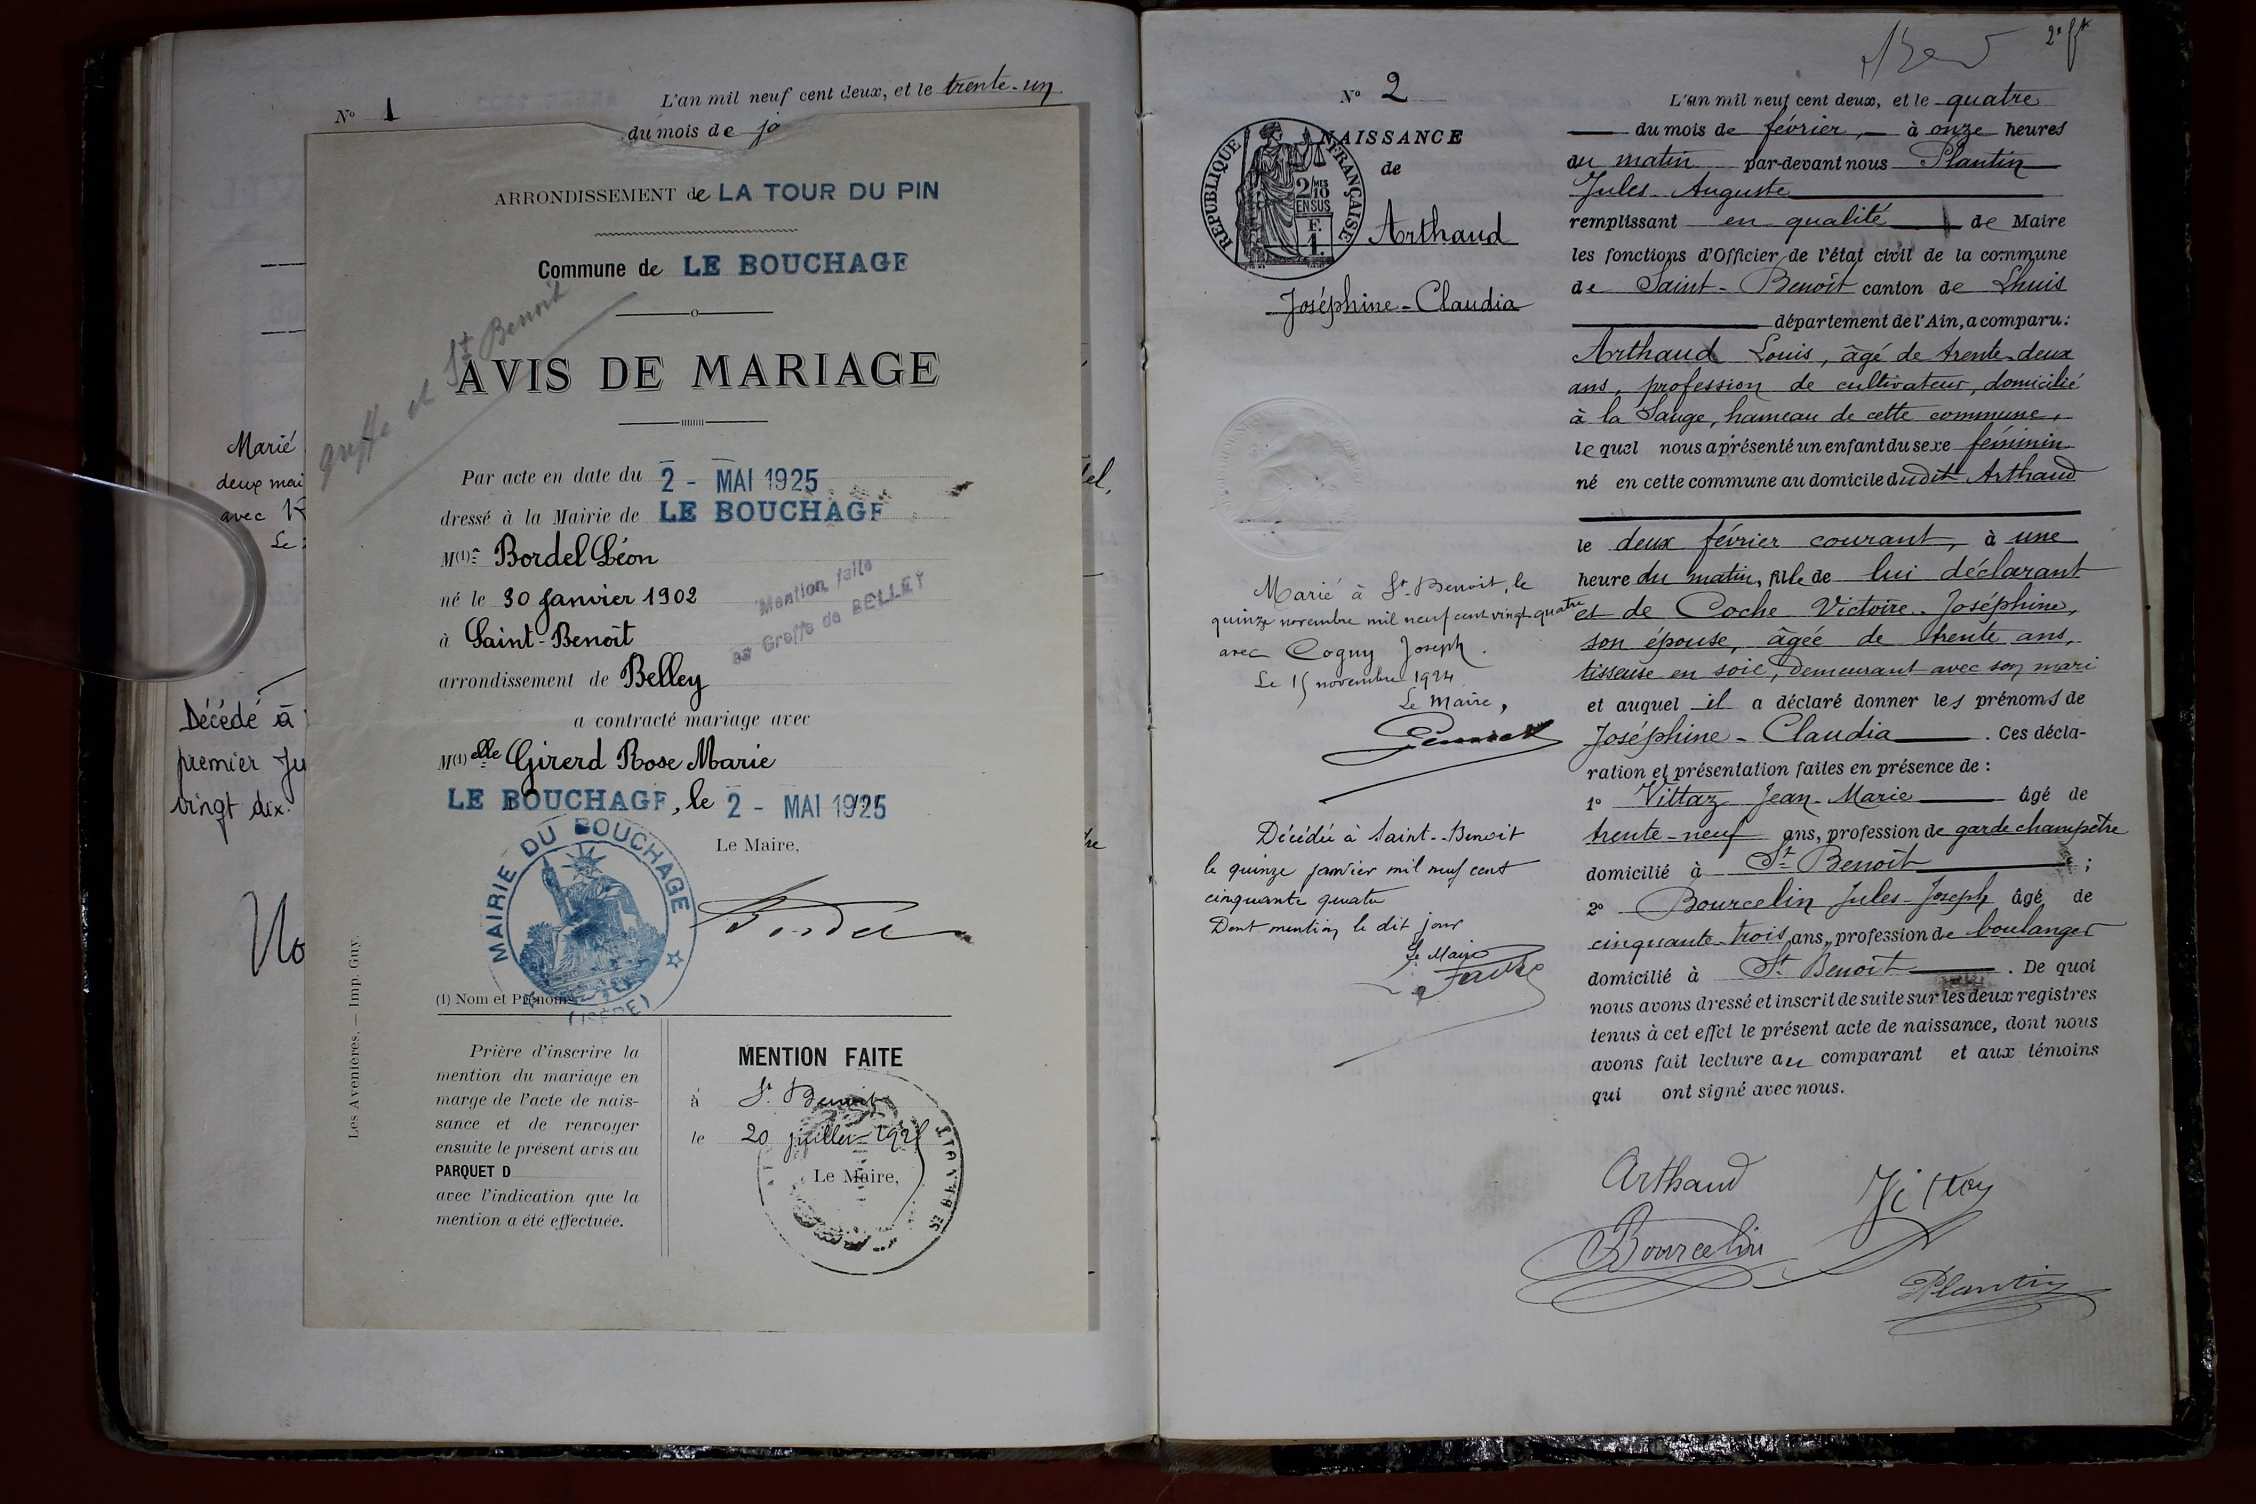 L'an mil neuf cent deux, et le trente-un
N° 1
du mois de ja
Marié
deux mai
avec
Le
Décédé à
premier Ju
vingt dix.
No
ARRONDISSEMENT de LA TOUR DU PIN
Commune de LE BOUCHAGE
greffe et St Benoit
AVIS DE MARIAGE
Par acte en date du 2 - MAI 1925
dressé à la Mairie de LE BOUCHAGE
M(1)r Bordel Léon
né le 30 Janvier 1902
Mention faite
à Saint-Benoît
au Greffe de BELLEY
arrondissement de Belley
a contracté mariage avec
M(1)elle Girerd Rose Marie
LE BOUCHAGE, le 2 - MAI 1925
Le Maire,
MAIRIE DU BOUCHAGE
(ISÈRE)
Bordel
(1) Nom et Prénoms.
Les Avenières. — Imp. Guy.
Prière d'inscrire la
mention du mariage en
marge de l'acte de nais-
sance et de renvoyer
ensuite le présent avis au
PARQUET D
avec l'indication que la
mention a été effectuée.
MENTION FAITE
à St Benoit
le 20 juillet 1925
Le Maire,
el,
re
2e ft
N° 2
NAISSANCE
de
REPUBLIQUE FRANÇAISE
2/10
EN SUS
F.
1.
Arthaud
Joséphine-Claudia
Marié à St-Benoit, le
quinze novembre mil neuf cent vingt-quatre
avec Cogny Joseph.
Le 15 novembre 1924
Le Maire,
Décédée à Saint-Benoit
le quinze janvier mil neuf cent
cinquante quatre
Dont mention le dit jour
Le Maire
L'an mil neuf cent deux, et le quatre
du mois de février, à onze heures
du matin par-devant nous Plantin
Jules Auguste
remplissant en qualité de Maire
les fonctions d'Officier de l'état civil de la commune
de Saint-Benoît canton de Lhuis
département de l'Ain, a comparu:
Arthaud Louis, âgé de trente-deux
ans, profession de cultivateur, domicilié
à la Sauge, hameau de cette commune,
lequel nous a présenté un enfant du sexe féminin
né en cette commune au domicile dudit Arthaud
le deux février courant, à une
heure du matin, fille de lui déclarant
et de Coche Victoire-Joséphine,
son épouse, âgée de trente ans,
tisseuse en soie, demeurant avec son mari
et auquel il a déclaré donner les prénoms de
Joséphine-Claudia. Ces décla-
ration et présentation faites en présence de:
1° Vittaz Jean-Marie âgé de
trente-neuf ans, profession de garde champêtre
domicilié à St Benoît;
2° Bourcelin Jules-Joseph âgé de
cinquante-trois ans, profession de boulanger
domicilié à St Benoît. De quoi
nous avons dressé et inscrit de suite sur les deux registres
tenus à cet effet le présent acte de naissance, dont nous
avons fait lecture au comparant et aux témoins
qui ont signé avec nous.
Arthaud
Bourcelin
Plantin